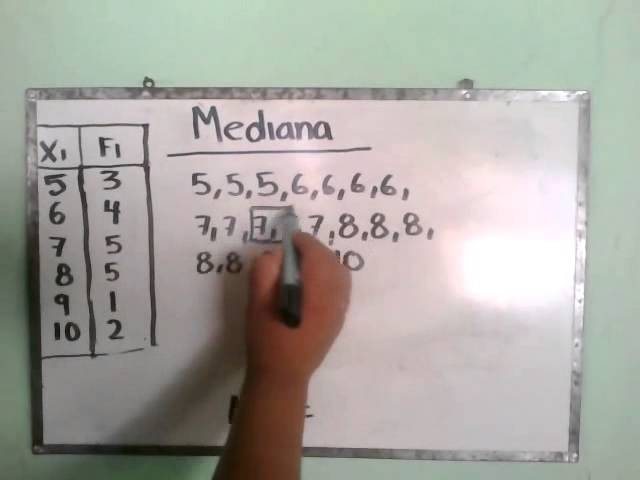 Mediana
X1 F1
5 3
6 4
7 5
8 5
9 1
10 2
5,5,5,6,6,6,6,
7,7,7, 7,8,8,8,
8,8 10